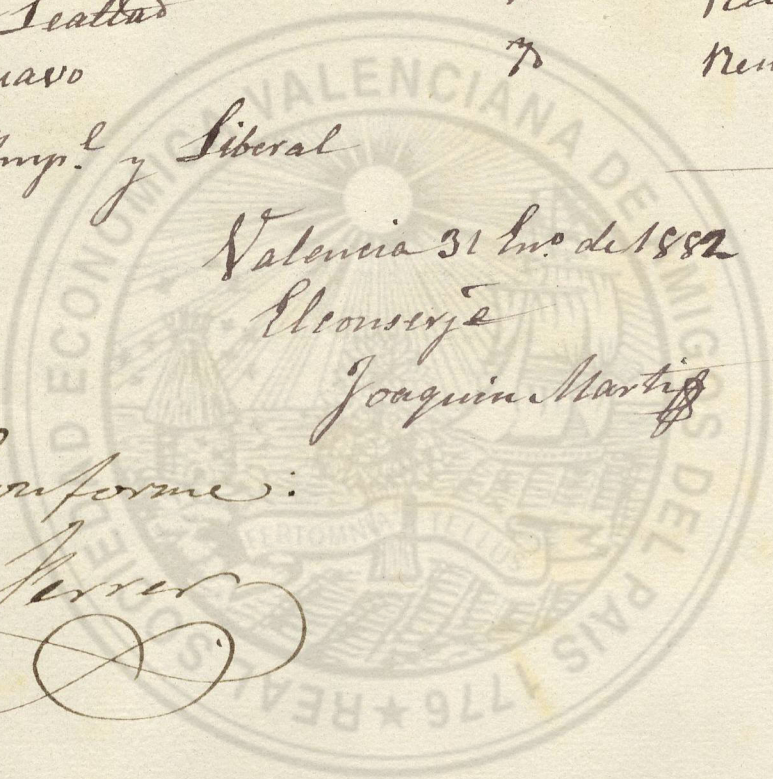 Lealtad
7
Imp.l y Liberal
Valencia 31 En.o de 1882
El conserje
Joaquin Marti
Conforme:
Ferrer
REAL SOCIEDAD ECONOMICA VALENCIANA DE AMIGOS DEL PAIS 1776 ★
FERT OMNIA TELLUS